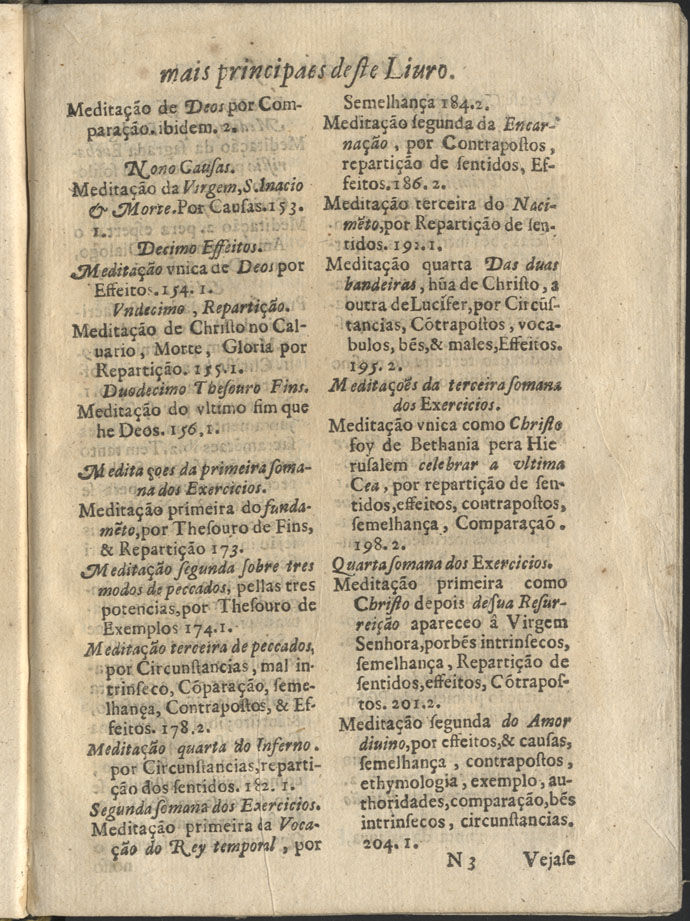 mais principaes deste Liuro.
Meditação de Deos por Com-
paração. ibidem. 2.
Nono Causas.
Meditação da Virgem, S. Inacio
& Morte. Por Causas. 153.
1.
Decimo Effeitos.
Meditação vnica de Deos por
Effeitos. 154. 1.
Vndecimo, Repartição.
Meditação de Christo no Cal-
uario, Morte, Gloria por
Repartição. 155. 1.
Duodecimo Thesouro Fins.
Meditação do vltimo fim que
he Deos. 156, 1.
Meditações da primeira soma-
na dos Exercicios.
Meditação primeira do funda-
mẽto, por Thesouro de Fins,
& Repartição 173.
Meditação segunda sobre tres
modos de peccados, pellas tres
potencias, por Thesouro de
Exemplos 174. 1.
Meditação terceira de peccados,
por Circunstancias, mal in-
trinseco, Cõparação, seme-
lhança, Contrapostos, & Ef-
feitos. 178. 2.
Meditação quarta do Inferno.
por Circunstancias, reparti-
ção dos sentidos. 182. 1.
Segunda semana dos Exercicios.
Meditação primeira da Voca-
ção do Rey temporal, por
Semelhança 184. 2.
Meditação segunda da Encar-
nação, por Contrapostos,
repartição de sentidos, Ef-
feitos. 186. 2.
Meditação terceira do Naci-
mẽto, por Repartição de sen-
tidos. 192. 1.
Meditação quarta Das duas
bandeiras, hũa de Christo, a
outra de Lucifer, por Circũs-
tancias, Cõtrapostos, voca-
bulos, bẽs, & males, Effeitos.
195. 2.
Meditações da terceira somana
dos Exercicios.
Meditação vnica como Christo
foy de Bethania pera Hie
rusalem celebrar a vltima
Cea, por repartição de sen-
tidos, effeitos, contrapostos,
semelhança, Comparação.
198. 2.
Quarta somana dos Exercicios.
Meditação primeira como
Christo depois de sua Resur-
reição apareceo â Virgem
Senhora, por bẽs intrinsecos,
semelhança, Repartição de
sentidos, effeitos, Cõtrapos-
tos. 201. 2.
Meditação segunda do Amor
diuino, por effeitos, & causas,
semelhança, contrapostos,
ethymologia, exemplo, au-
thoridades, comparação, bẽs
intrinsecos, circunstancias.
204. 1.
N 3 Vejase